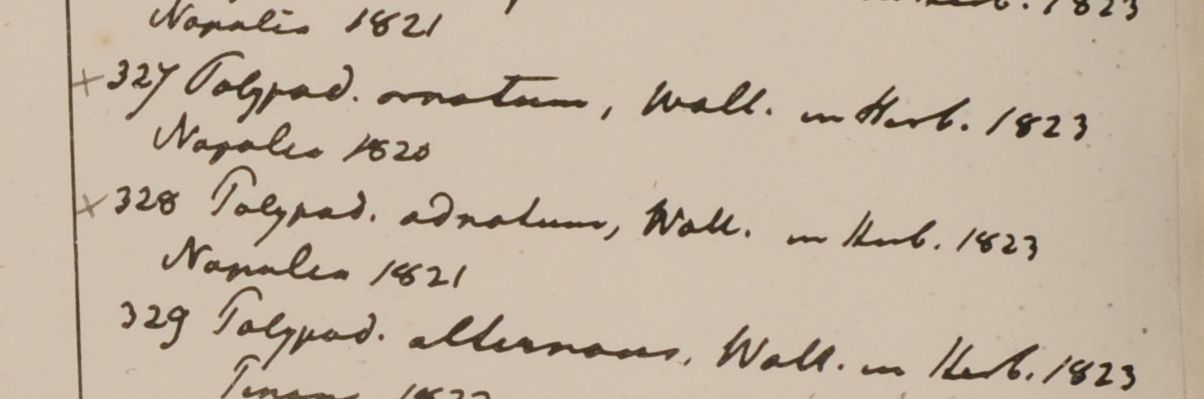 Napalia 1821
in Herb. 1823
× 327 Polypod. ornatum, Wall. in Herb. 1823
Napalia 1820
× 328 Polypod. adnatum, Wall. in Herb. 1823
Napalia 1821
329 Polypod. alternans, Wall. in Herb. 1823
1822